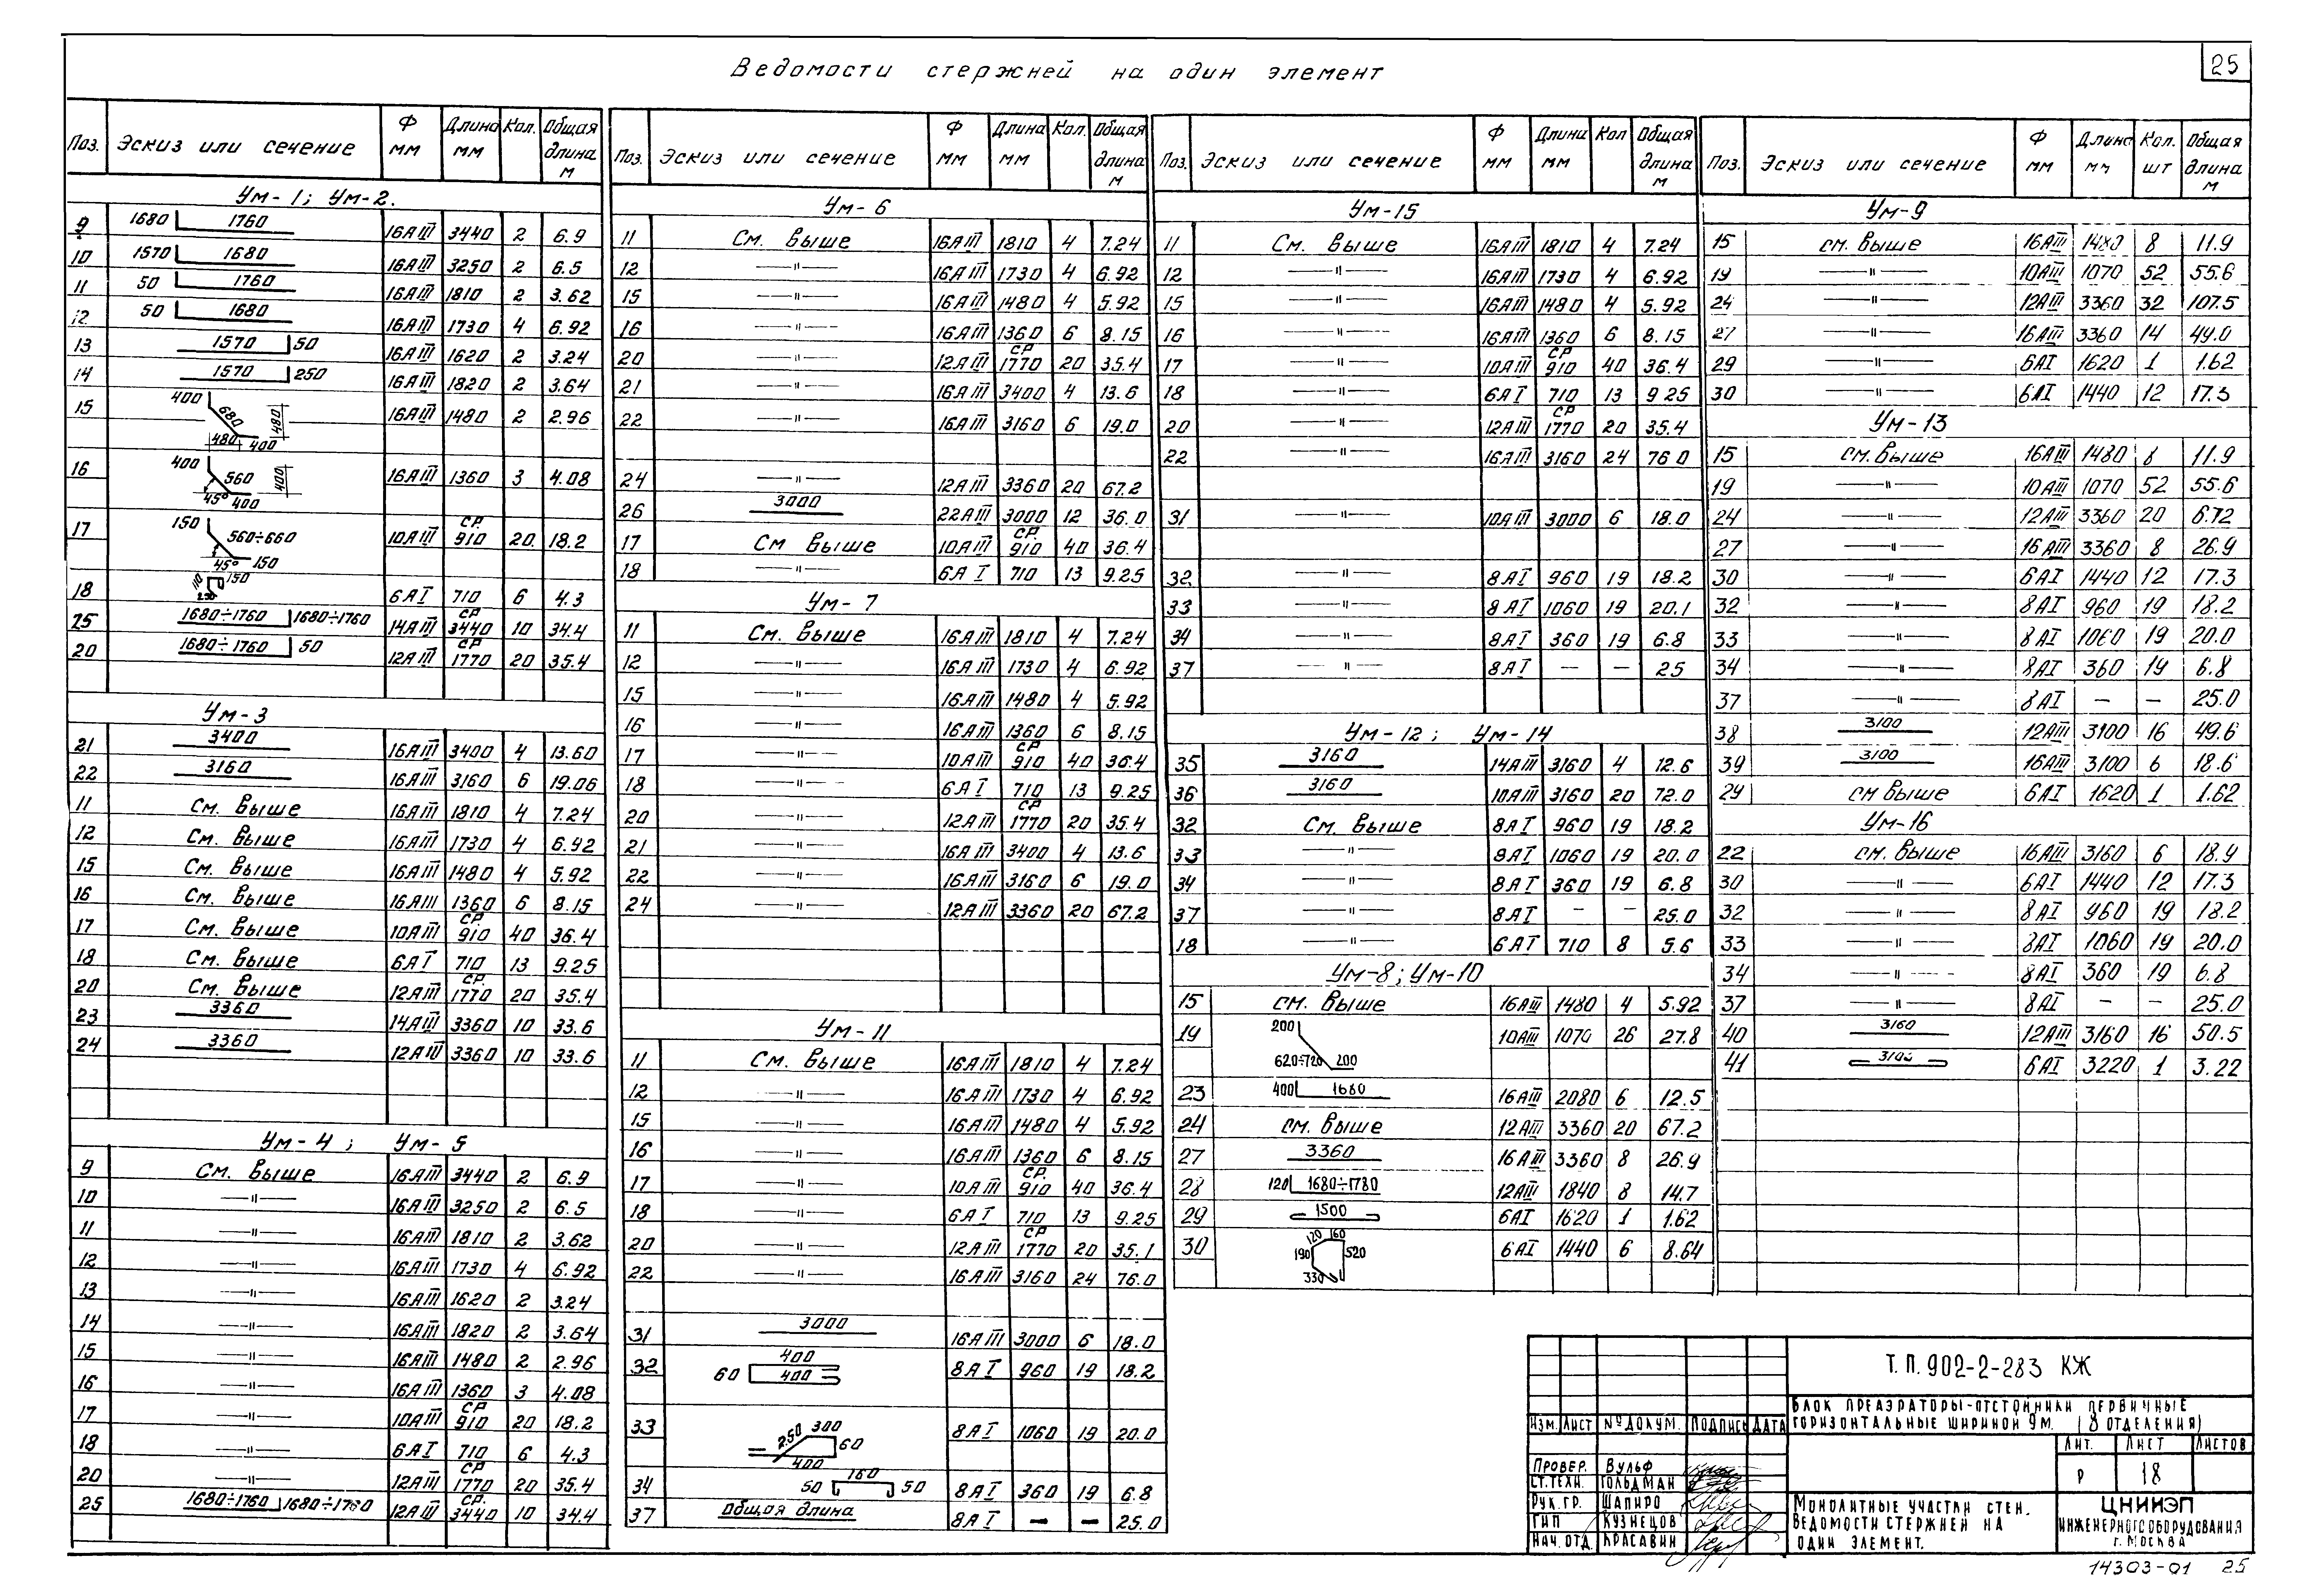 25
Ведомости стержней на один элемент
Поз. Эскиз или сечение Ф мм Длина мм Кол. Общая длина м
Ум-1; Ум-2.
9 1680 1760 16АIII 3440 2 6.9
10 1570 1680 16АIII 3250 2 6.5
11 50 1760 16АIII 1810 2 3.62
12 50 1680 16АIII 1730 4 6.92
13 1570 50 16АIII 1620 2 3.24
14 1570 250 16АIII 1820 2 3.64
15 400 680 480 480 400 16АIII 1480 2 2.96
16 400 560 400 45° 400 16АIII 1360 3 4.08
17 150 560÷660 45° 150 10АIII ср. 910 20 18.2
18 110 150 250 6АI 710 6 4.3
25 1680÷1760 1680÷1760 14АIII ср 3440 10 34.4
20 1680÷1760 50 12АIII ср 1770 20 35.4
Ум-3
21 3400 16АIII 3400 4 13.60
22 3160 16АIII 3160 6 19.06
11 См. выше 16АIII 1810 4 7.24
12 См. выше 16АIII 1730 4 6.92
15 См. выше 16АIII 1480 4 5.92
16 См. выше 16АIII 1360 6 8.15
17 См. выше 10АIII ср. 910 40 36.4
18 См. выше 6АI 710 13 9.25
20 См. выше 12АIII ср. 1770 20 35.4
23 3360 14АIII 3360 10 33.6
24 3360 12АIII 3360 10 33.6
Ум-4; Ум-5
9 См. выше 16АIII 3440 2 6.9
10 —"— 16АIII 3250 2 6.5
11 —"— 16АIII 1810 2 3.62
12 —"— 16АIII 1730 4 6.92
13 —"— 16АIII 1620 2 3.24
14 —"— 16АIII 1820 2 3.64
15 —"— 16АIII 1480 2 2.96
16 —"— 16АIII 1360 3 4.08
17 —"— 10АIII ср 910 20 18.2
18 —"— 6АI 710 6 4.3
20 —"— 12АIII ср 1770 20 35.4
25 1680÷1760 1680÷1760 12АIII ср. 3440 10 34.4
Поз. Эскиз или сечение Ф мм Длина мм Кол. Общая длина м
Ум-6
11 См. выше 16АIII 1810 4 7.24
12 —"— 16АIII 1730 4 6.92
15 —"— 16АIII 1480 4 5.92
16 —"— 16АIII 1360 6 8.15
20 —"— 12АIII ср 1770 20 35.4
21 —"— 16АIII 3400 4 13.6
22 —"— 16АIII 3160 6 19.0
24 —"— 12АIII 3360 20 67.2
26 3000 22АIII 3000 12 36.0
17 См выше 10АIII ср. 910 40 36.4
18 —"— 6АI 710 13 9.25
Ум-7
11 См. выше 16АIII 1810 4 7.24
12 —"— 16АIII 1730 4 6.92
15 —"— 16АIII 1480 4 5.92
16 —"— 16АIII 1360 6 8.15
17 —"— 10АIII ср 910 40 36.4
18 —"— 6АI 710 13 9.25
20 —"— 12АIII ср 1770 20 35.4
21 —"— 16АIII 3400 4 13.6
22 —"— 16АIII 3160 6 19.0
24 —"— 12АIII 3360 20 67.2
Ум-11
11 См. выше 16АIII 1810 4 7.24
12 —"— 16АIII 1730 4 6.92
15 —"— 16АIII 1480 4 5.92
16 —"— 16АIII 1360 6 8.15
17 —"— 10АIII ср. 910 40 36.4
18 —"— 6АI 710 13 9.25
20 —"— 12АIII ср 1770 20 35.1
22 —"— 16АIII 3160 24 76.0
31 3000 16АIII 3000 6 18.0
32 60 400 400 8АI 960 19 18.2
33 250 300 60 400 8АI 1060 19 20.0
34 50 160 50 8АI 360 19 6.8
37 Общая длина 8АI — — 25.0
Поз. Эскиз или сечение Ф мм Длина мм Кол Общая длина м
Ум-15
11 См. выше 16АIII 1810 4 7.24
12 —"— 16АIII 1730 4 6.92
15 —"— 16АIII 1480 4 5.92
16 —"— 16АIII 1360 6 8.15
17 —"— 10АIII ср 910 40 36.4
18 —"— 6АI 710 13 9 25
20 —"— 12АIII ср 1770 20 35.4
22 —"— 16АIII 3160 24 76 0
31 —"— 10АIII 3000 6 18.0
32 —"— 8АI 960 19 18.2
33 —"— 8АI 1060 19 20.1
34 —"— 8АI 360 19 6.8
37 —"— 8АI — — 25
Ум-12; Ум-14
35 3160 14АIII 3160 4 12.6
36 3160 10АIII 3160 20 72.0
32 См. выше 8АI 960 19 18.2
33 —"— 8АI 1060 19 20.0
34 —"— 8АI 360 19 6.8
37 —"— 8АI — — 25.0
18 —"— 6АI 710 8 5.6
Ум-8; Ум-10
15 см. выше 16АIII 1480 4 5.92
19 200 620÷720 200 10АIII 1070 26 27.8
23 400 1680 16АIII 2080 6 12.5
24 см. выше 12АIII 3360 20 67.2
27 3360 16АIII 3360 8 26.9
28 120 1680÷1780 12АIII 1840 8 14.7
29 1500 6АI 1620 1 1.62
30 120 160 190 520 330 6АI 1440 6 8.64
Поз. Эскиз или сечение Ф мм Длина мм Кол. шт Общая длина м
Ум-9
15 см. выше 16АIII 1480 8 11.9
19 —"— 10АIII 1070 52 55.6
24 —"— 12АIII 3360 32 107.5
27 —"— 16АIII 3360 14 49.0
29 —"— 6АI 1620 1 1.62
30 —"— 6АI 1440 12 17.3
Ум-13
15 см. выше 16АIII 1480 8 11.9
19 —"— 10АIII 1070 52 55.6
24 —"— 12АIII 3360 20 6.72
27 —"— 16АIII 3360 8 26.9
30 —"— 6АI 1440 12 17.3
32 —"— 8АI 960 19 18.2
33 —"— 8АI 1060 19 20.0
34 —"— 8АI 360 19 6.8
37 —"— 8АI — — 25.0
38 3100 12АIII 3100 16 49.6
39 3100 16АIII 3100 6 18.6
29 см выше 6АI 1620 1 1.62
Ум-16
22 см. выше 16АIII 3160 6 18.9
30 —"— 6АI 1440 12 17.3
32 —"— 8АI 960 19 18.2
33 —"— 8АI 1060 19 20.0
34 —"— 8АI 360 19 6.8
37 —"— 8АI — — 25.0
40 3160 12АIII 3160 16 50.5
41 3100 6АI 3220 1 3.22
Т.П. 902-2-283 КЖ
Блок преаэраторы-отстойники первичные
горизонтальные шириной 9м. (8 отделения)
Изм. Лист № докум. Подпись Дата
Лит. Лист Листов
Р 18
Провер. Вульф
Ст.техн. Гольдман
Рук.гр. Шапиро
ГИП Кузнецов
Нач.отд. Красавин
Монолитные участки стен.
Ведомости стержней на
один элемент.
ЦНИИЭП
инженерного оборудования
г. Москва
14303-01 25